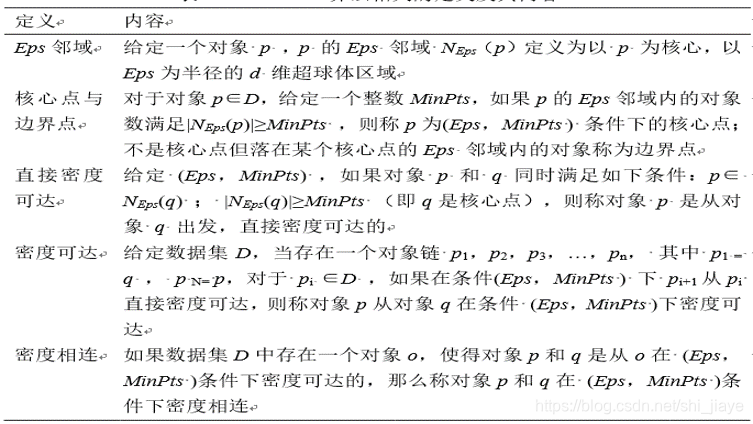 定义 内容
Eps 邻域 给定一个对象 p ,p 的 Eps 邻域 NEps(p)定义为以 p 为核心,以
Eps 为半径的 d 维超球体区域
核心点与 对于对象 p∈D,给定一个整数 MinPts,如果 p 的 Eps 邻域内的对象
边界点 数满足|NEps(p)|≥MinPts ,则称 p 为(Eps,MinPts ) 条件下的核心点;
不是核心点但落在某个核心点的 Eps 邻域内的对象称为边界点
直接密度 给定 (Eps,MinPts) ,如果对象 p 和 q 同时满足如下条件:p∈
可达 NEps(q) ; |NEps(q)|≥MinPts (即 q 是核心点),则称对象 p 是从对
象 q 出发,直接密度可达的
密度可达 给定数据集 D,当存在一个对象链 p1,p2,p3,…,pn, 其中 p1 =
q , pN= p,对于 pi ∈D ,如果在条件(Eps,MinPts ) 下 pi+1 从 pi
直接密度可达,则称对象 p 从对象 q 在条件 (Eps,MinPts )下密度可
达
密度相连 如果数据集 D 中存在一个对象 o,使得对象 p 和 q 是从 o 在 (Eps,
MinPts )条件下密度可达的,那么称对象 p 和 q 在 (Eps,MinPts )条
件下密度相连
https://blog.csdn.net/shi_jiaye